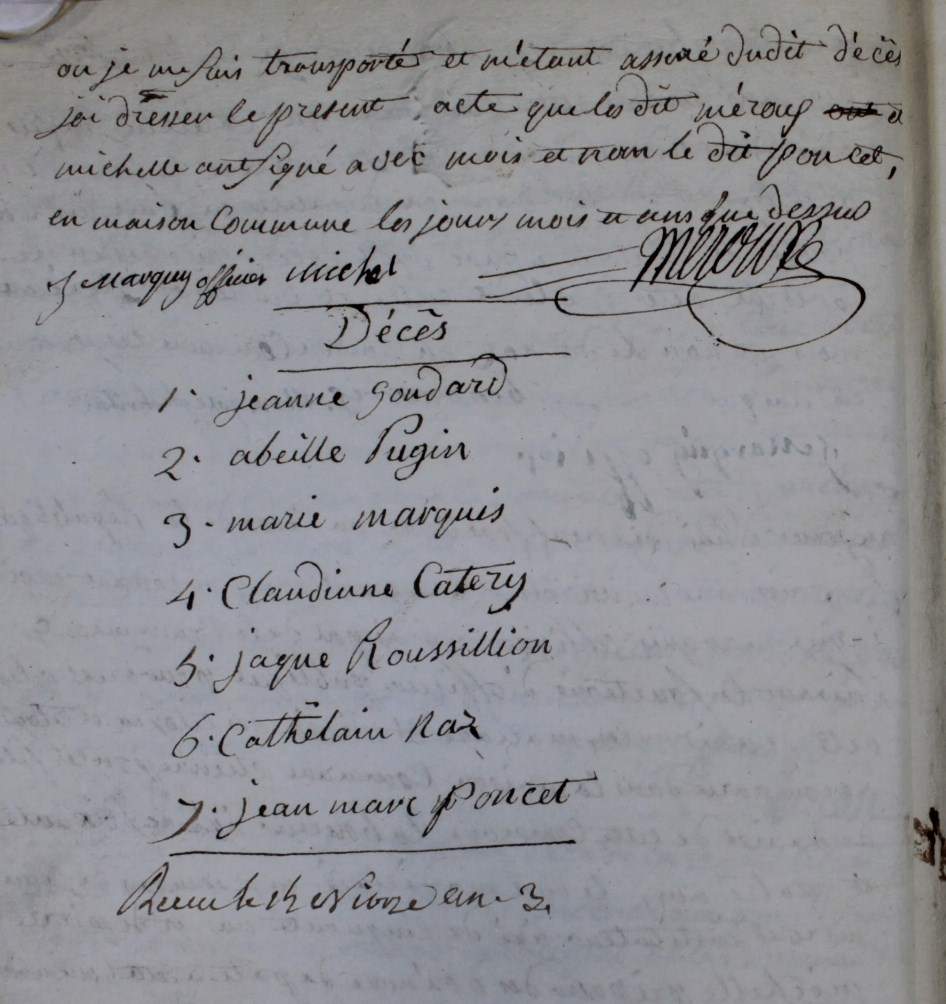 ou je me suis transporté et m'étant assuré dudit décês
j'ai dresser le present acte que les dit méroug a
michelle ont signé avec mois et non le dit poncet,
en maison Commune les jours mois et ans que dessus
j Marquy officier Michel
Décês
1. jeanne goudard
2. abeille Pugin
3. marie marquis
4. Claudinne Catery
5. jaque Roussillion
6. Cathêlain Naz
7. jean marc poncet
Receu le 12 Nivoze an. 3.